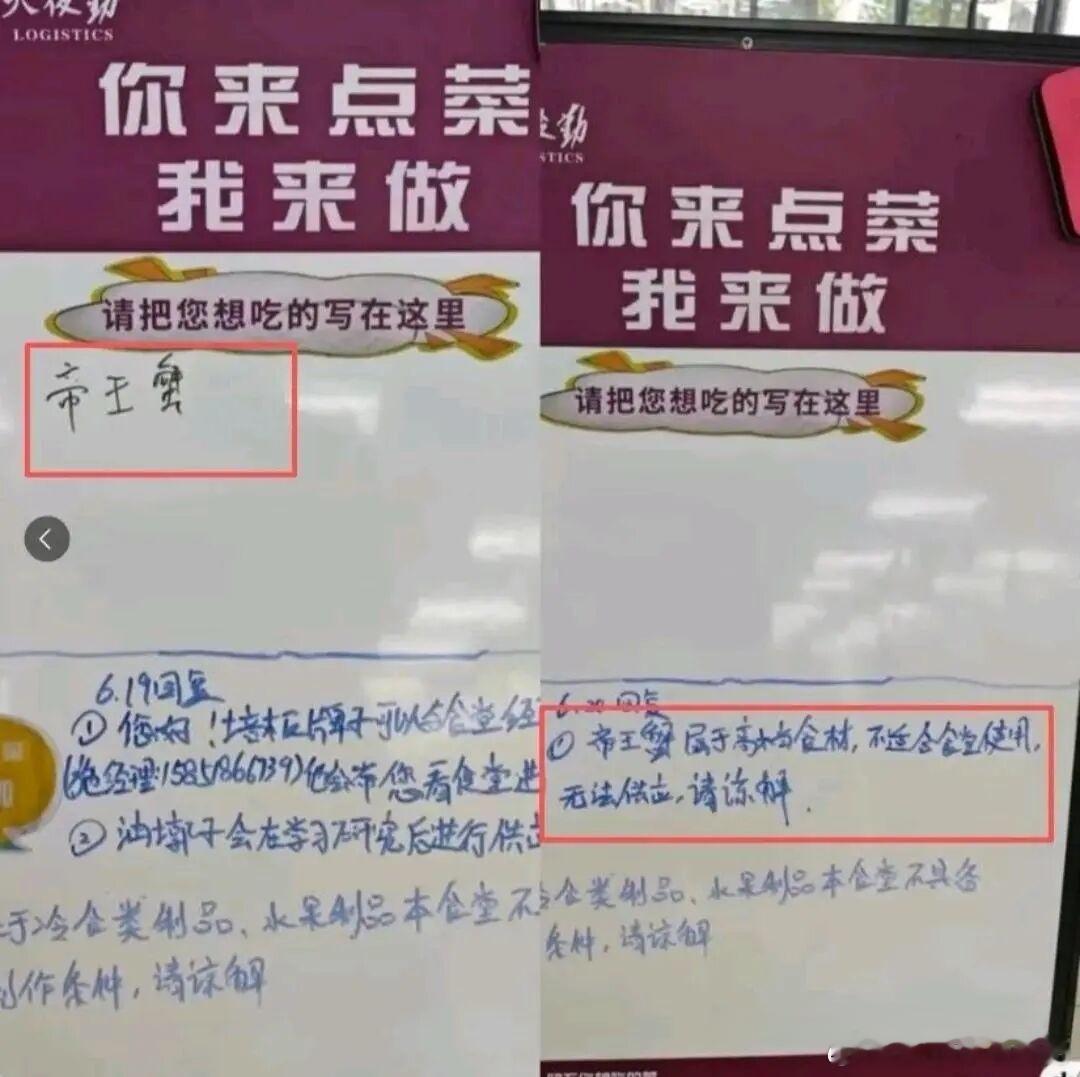 LOGISTICS
你来点菜
我来做
请把您想吃的写在这里
帝王蟹
6.19回复
①您好!培根巨牌子可以与食堂经
经理:15851866739)他会带您看食堂进
②油墩子会在学习研究后进行供应
于冷食类制品、水果制品本食堂不
制作条件,请谅解
勤
STICS
你来点菜
我来做
请把您想吃的写在这里
6.20回复
①帝王蟹属于高档食材,不适合食堂使用,
无法供应,请谅解.
冷食类制品、水果制品本食堂不具备
条件,请谅解